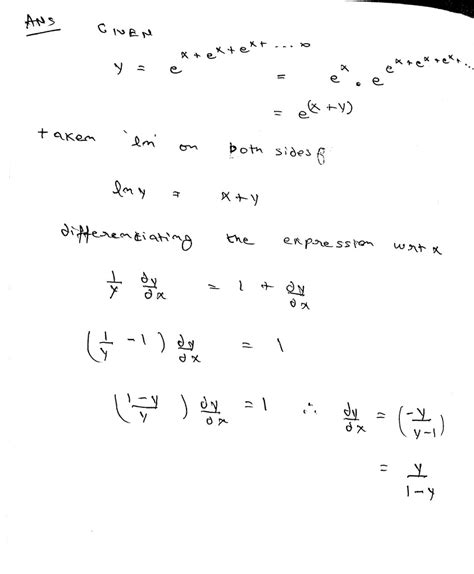 Ans Given
y = e^{x+e^{x+e^{x+ ... ∞}}} = e^x . e^{e^{x+e^{x+e^{x+...}}}}
= e^{(x+y)}
taken 'ln' on both sides
ln y = x+y
differentiating the expression wrt x
1/y dy/dx = 1 + dy/dx
(1/y - 1) dy/dx = 1
((1-y)/y) dy/dx = 1 ∴ dy/dx = (-y/(y-1))
= y/(1-y)